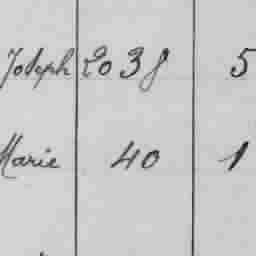 Joseph 2038 5
Marie 40 1